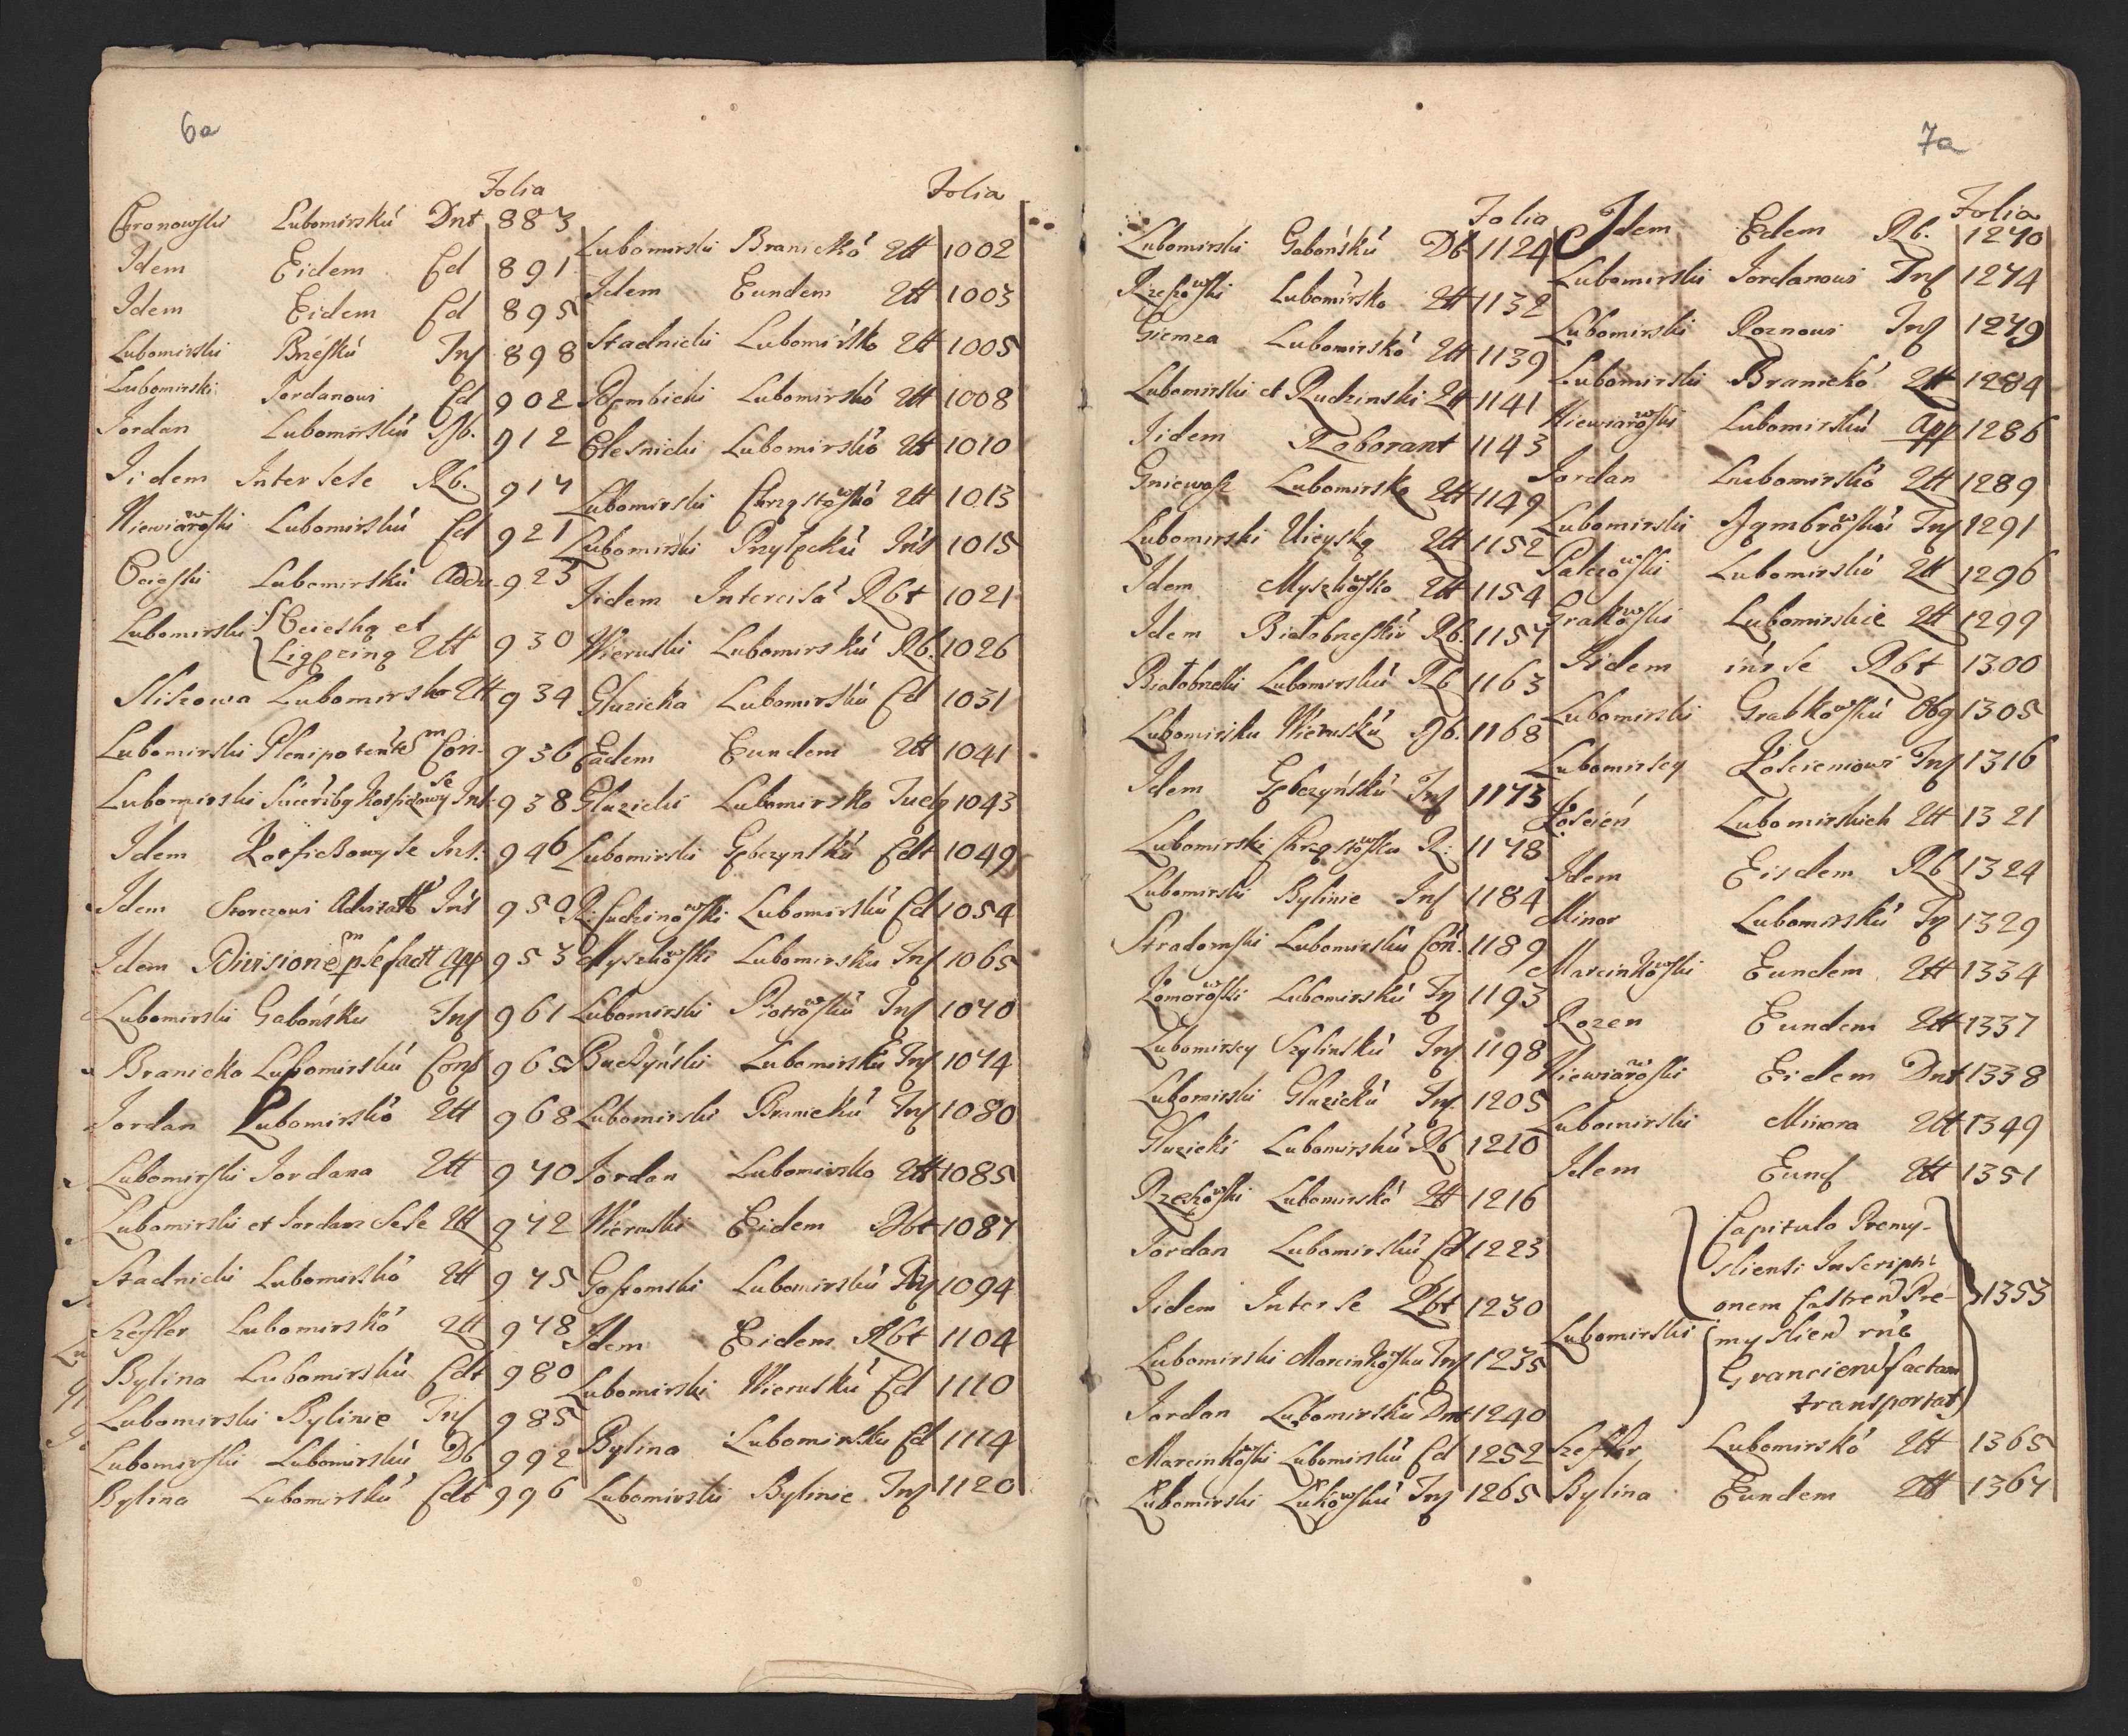 6a
Folia
Chronowski Lubomirskú Dnt 883
Idem Eidem Cd 891
Idem Eidem Cd 895
Lubomirski Brzeskú Inf 898
Lubomirski Jordanowi Cd 902
Jordan Lubomirskú Ob. 912
Iidem Inter sese Rb. 917
Niewiarowski Lubomirskú Cd 921
Ocieski Lubomirskú 925
Lubomirski Ocieską et
Ligęzing Att 930
Slizowa Lubomirsko Att 934
Lubomirski Plenipotente Con 936
Lubomirski Koryciowy Ins 938
Idem Ins. 946
Idem Storczowi Ins 950
Idem Divisione pse fact App 953
Lubomirski Gabońsku Inf 961
Branicko Lubomirskú Cons 965
Jordan Lubomirskó Att 968
Lubomirski Jordana Att 970
Lubomirski et Jordan sese Att 972
Stadnicki Lubomirskó Att 975
Szefler Lubomirskó Att 978
Bylina Lubomirskú Cdt 980
Lubomirski Bylinie Inf 985
Lubomirski Lubomirskú Db 992
Bylina Lubomirskú Cdt 996
Folia
Lubomirski Branickó Att 1002
Idem Eundem Att 1003
Stadnicki Lubomirsko Att 1005
Dembicki Lubomirskó Att 1008
Olesnicki Lubomirskó Att 1010
Lubomirski Chrząstowskó Att 1013
Lubomirski Przylęckú Ins 1015
Iidem Intercisá Rbt 1021
Wieruski Lubomirskú Rb. 1026
Gluzicka Lubomirskú Cd 1031
Eadem Eundem Att 1041
Gluzicki Lubomirsko 1043
Lubomirski Gębczynskú Cdt 1049
Lubomirskú Cd 1054
Myszkowski Lubomirsku Inf 1065
Lubomirski Piotrowskú Inf 1070
Buczyński Lubomirskú Inf 1074
Lubomirski Branickú Inf 1080
Jordan Lubomirsko Att 1085
Wieruski Eidem Rbt 1087
Gostomski Lubomirskú Inf 1094
Idem Eidem Rbt 1104
Lubomirski Wieruskú Cd 1110
Bylina Lubomirsku Cd 1114
Lubomirski Bylinie Inf 1120
7a
Folia
Lubomirski Gabońskú Db 1124
Rzeszowski Lubomirsko Att 1132
Giemza Lubomirskó Att 1139
Lubomirski et Rudzinski Att 1141
Iidem Roborant 1143
Gniewosz Lubomirsko Att 1149
Lubomirski Uieyską Att 1152
Idem Myszkowsko Att 1154
Idem Białobrzeskiú Rb. 1157
Białobrzeski Lubomirskú Rb 1163
Lubomirsku Wieruskú Ob. 1168
Idem Gębczyńskú Inf 1173
Lubomirski Chrząstowsku R: 1178
Lubomirski Bylinie Inf 1184
Stradomski Lubomirskú Con. 1189
Komorowski Lubomirskú In 1193
Lubomirscy Szylinskú Inf 1198
Lubomirski Gluzickú Inf. 1205
Gluzicki Lubomirskú Rb 1210
Rzeszowski Lubomirskó Att 1216
Jordan Lubomirskú Cd 1223
Iidem Inter se Rbt 1230
Lubomirski Marcinkowsku Inf 1235
Jordan Lubomirsku Dnt 1240
Marcinkowski Lubomirskú Cd 1252
Lubomirski Lukowskú Inf 1265
Folia
Idem Edem Rb. 1270
Lubomirski Jordanowi Inf 1274
Lubomirski Roznowi Inf 1279
Lubomirski Branickó Att 1284
Niewiarowski Lubomirskú App 1286
Jordan Lubomirskó Att 1289
Lubomirski Inf 1291
Palczowski Lubomirskó Att 1296
Grabkowski Lubomirskie Att 1299
Iidem intr se Rbt 1300
Lubomirski Grabkowskú Obg 1305
Lubomirscy Koscieniowi Inf 1316
Koscień Lubomirskich Att 1321
Idem Eisdem Rb 1324
Minor Lubomirskú In 1329
Marcinkowski Eundem Att 1334
Rozen Eundem Att 1337
Niewiarowski Eidem Dnt 1338
Lubomirski Minora Att 1349
Idem Eund Att 1351
Capitulo Premy-
sliensi Inscripti-
onem Castren Pre- 1353
Lubomirski myslien
Granicien factam
transportat
Szefler Lubomirskó Att 1365
Bylina Eundem Att 1367